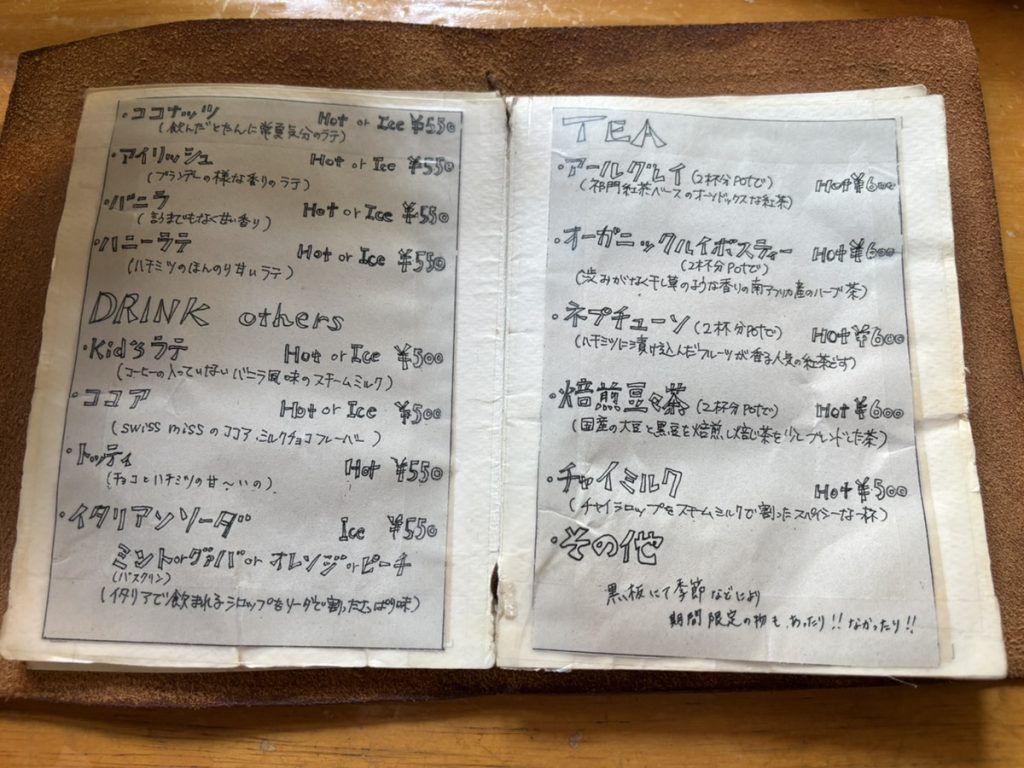 ・ココナッツ Hot or Ice ¥550
(飲んだとたんに常夏気分のラテ)
・アイリッシュ Hot or Ice ¥550
(ブランデーの様な香りのラテ)
・バニラ Hot or Ice ¥550
(言うまでもなく甘い香り)
・ハニーラテ Hot or Ice ¥550
(ハチミツのほんのり甘いラテ)
DRINK others
・Kid's ラテ Hot or Ice ¥500
(コーヒーの入っていないバニラ風味のスチームミルク)
・ココア Hot or Ice ¥500
(swiss missのココア ミルクチョコフレーバー)
・トッティ Hot ¥550
(チョコとハチミツの甘〜いの)
・イタリアンソーダ Ice ¥550
ミントorグァバor オレンジorピーチ
(バスクリン)
(イタリアで飲まれるシロップをソーダで割ったさっぱり味)
TEA
・アールグレイ(2杯分Potで) Hot ¥600
(祁門紅茶ベースのオーソドックスな紅茶)
・オーガニックルイボスティー Hot ¥600
(2杯分Potで)
(渋みがなく干し草のような香りの南アフリカ産のハーブ茶)
・ネプチューン(2杯分Potで) Hot ¥600
(ハチミツに漬け込んだフルーツが香る人気の紅茶です)
・焙煎豆々茶(2杯分Potで) Hot ¥600
(国産の大豆と黒豆を焙煎し焙じ茶を少しブレンドした茶)
・チャイミルク Hot ¥500
(チャイシロップをスチームミルクで割ったスパイシーな一杯)
・その他
黒板にて季節などにより
期間限定の物も あったり!!なかったり!!